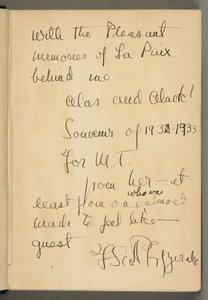 With the Pleasant
memories of La Paix
behind me
alas and alack!
Souvenir of 1932-1933
For M.T.
from her—at
who was
least from one almost
made to feel like—
guest
F Scott Fitzgerald